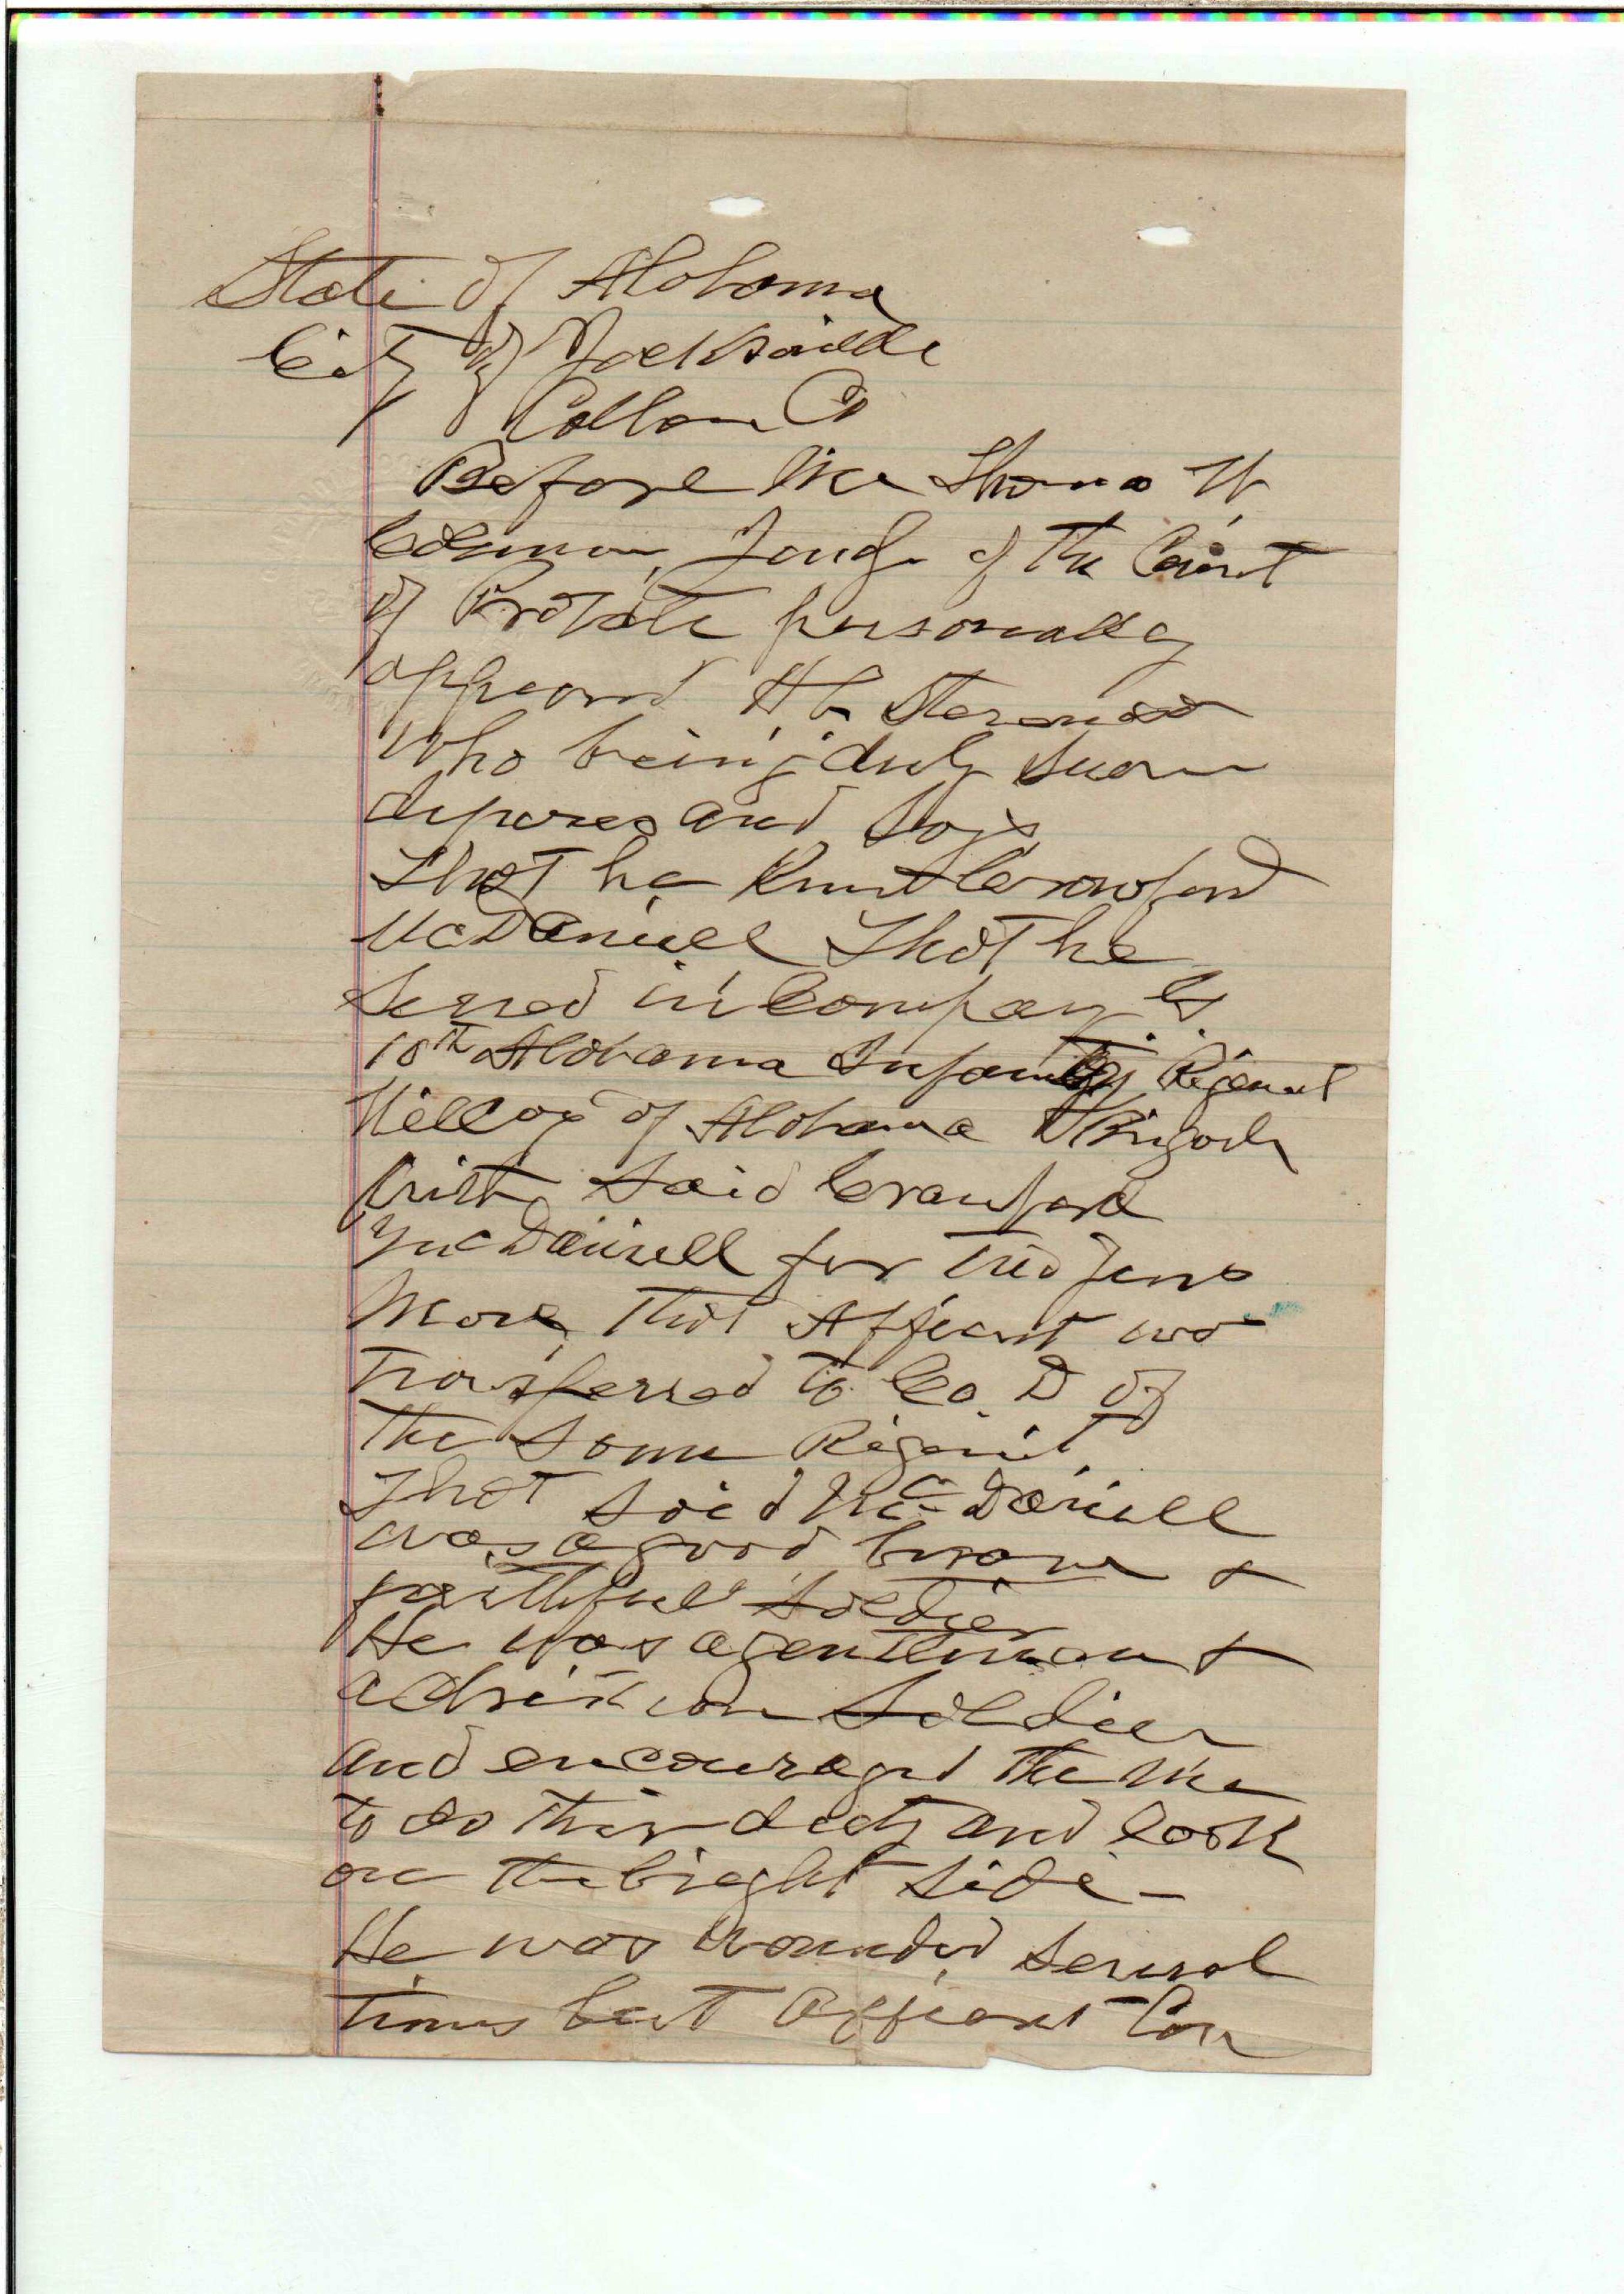 State of Alabama
City of Jacksonville
Calhoun Co
Before me Thomas W
Coleman, Judge of the Court
of Probate personally
appeared H C Stevenson
who being duly sworn
deposes and says
That he knew Crawford
McDaniell That he
served in Company G
10th Alabama Infantry Regiment
Willcox of Alabama Brigade
with said Crawford
McDaniell for two years
more, this Affiant was
transferred to Co. D of
the same Regiment
That said McDaniell
was a good brave &
faithfull soldier
He was a gentleman &
a christian Soldier
and encouraged the men
to do their duty and look
on the bright side -
He was wounded several
times but affiant can